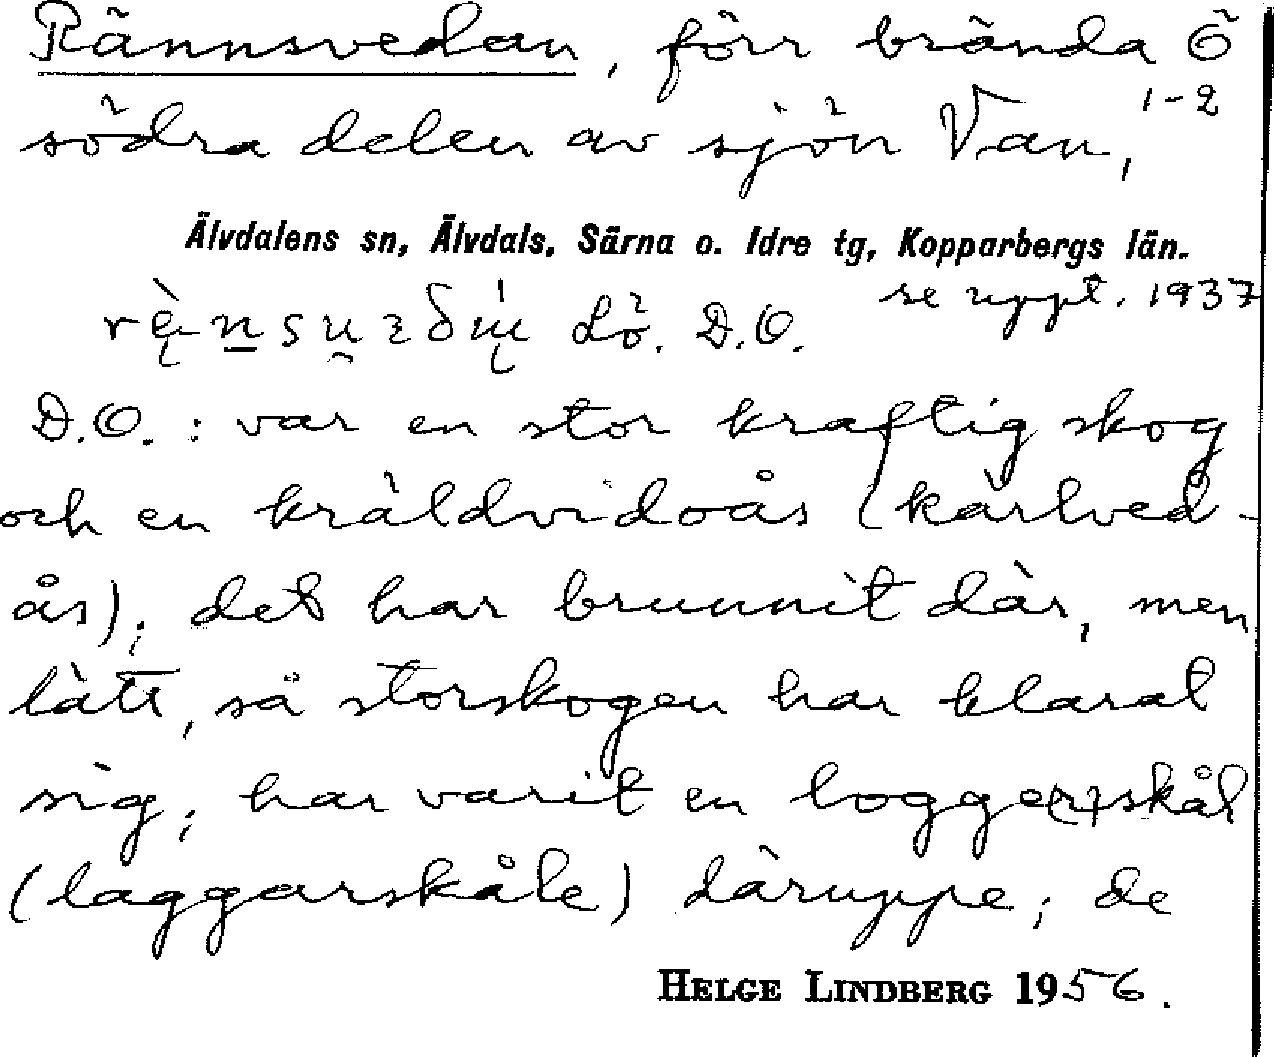 Rännsvedan, förr brända Ö
södra delen av sjön Van, 1-2
Älvdalens sn, Älvdals, Särna o. Idre tg, Kopparbergs län.
se uppt. 1937
Lö. D.O.
D.O.: var en stor kraftig skog
och en kräldvidoås (kärlved-
ås); det har brunnit där, men
lätt, så storskogen har klarat
sig; har varit en logge(r)skål
(laggarskåle) däruppe; de
HELGE LINDBERG 1956.